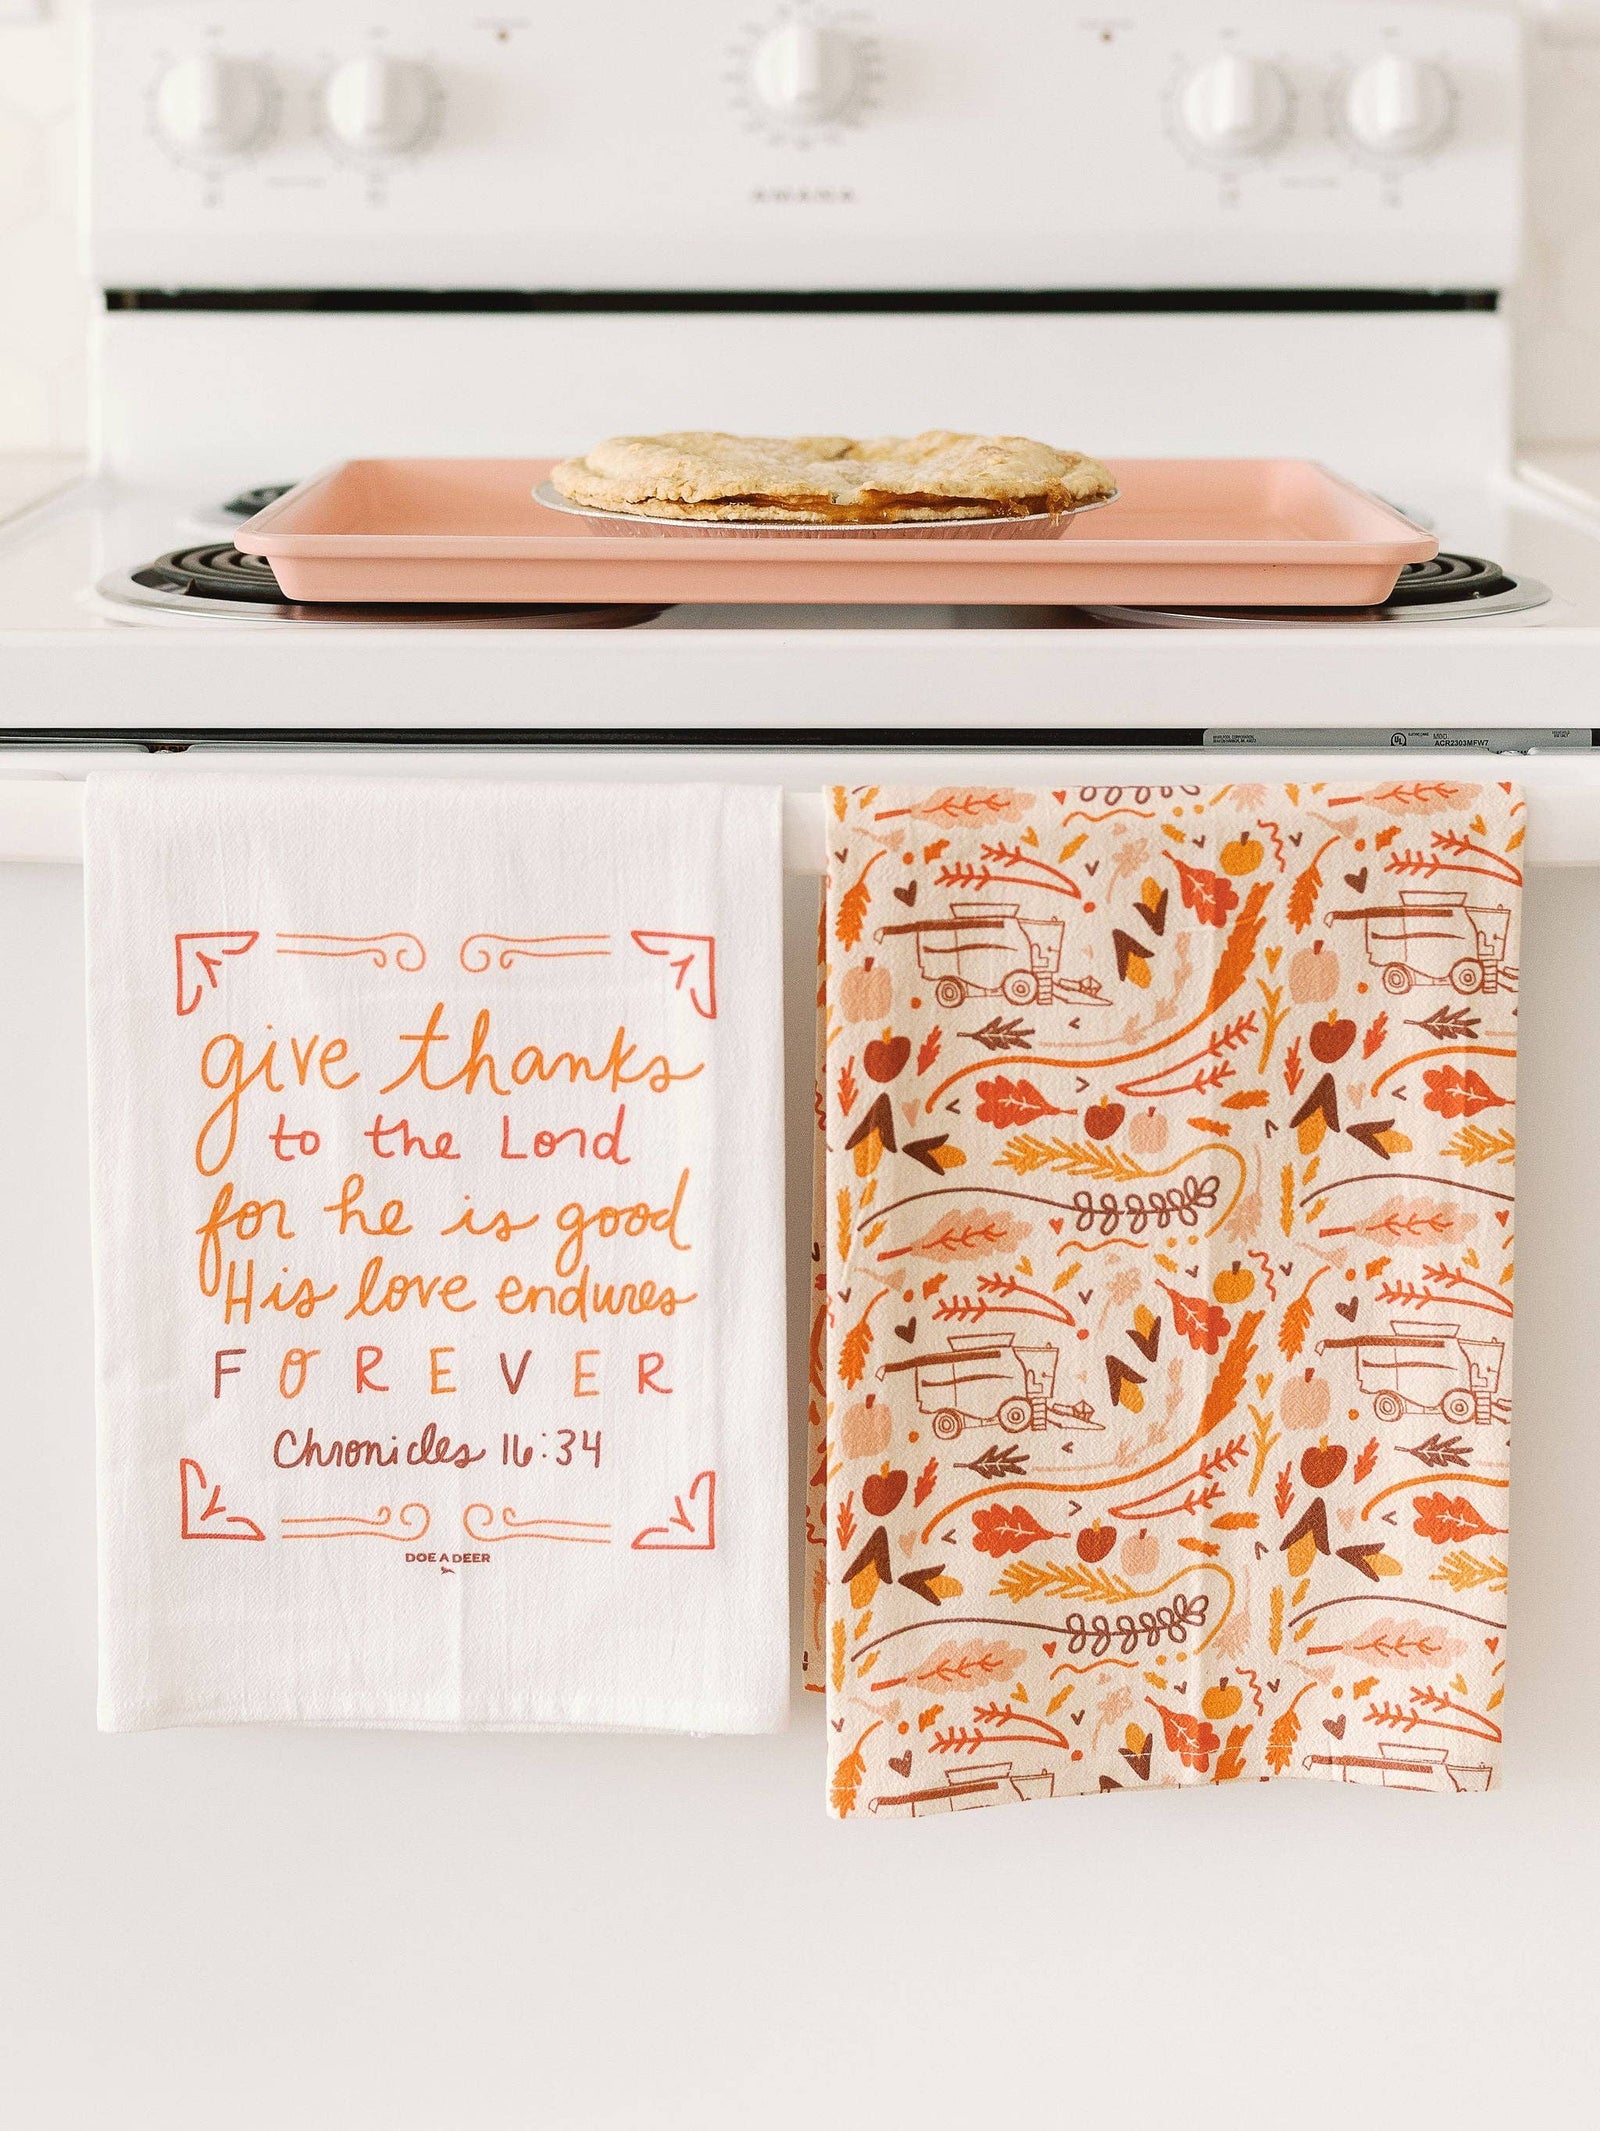 AMANA
WHIRLPOOL CORPORATION
UL
MOD.
ACR2303MFW7
give thanks
to the Lord
for he is good
His love endures
FOREVER
Chronicles 16:34
DOE A DEER